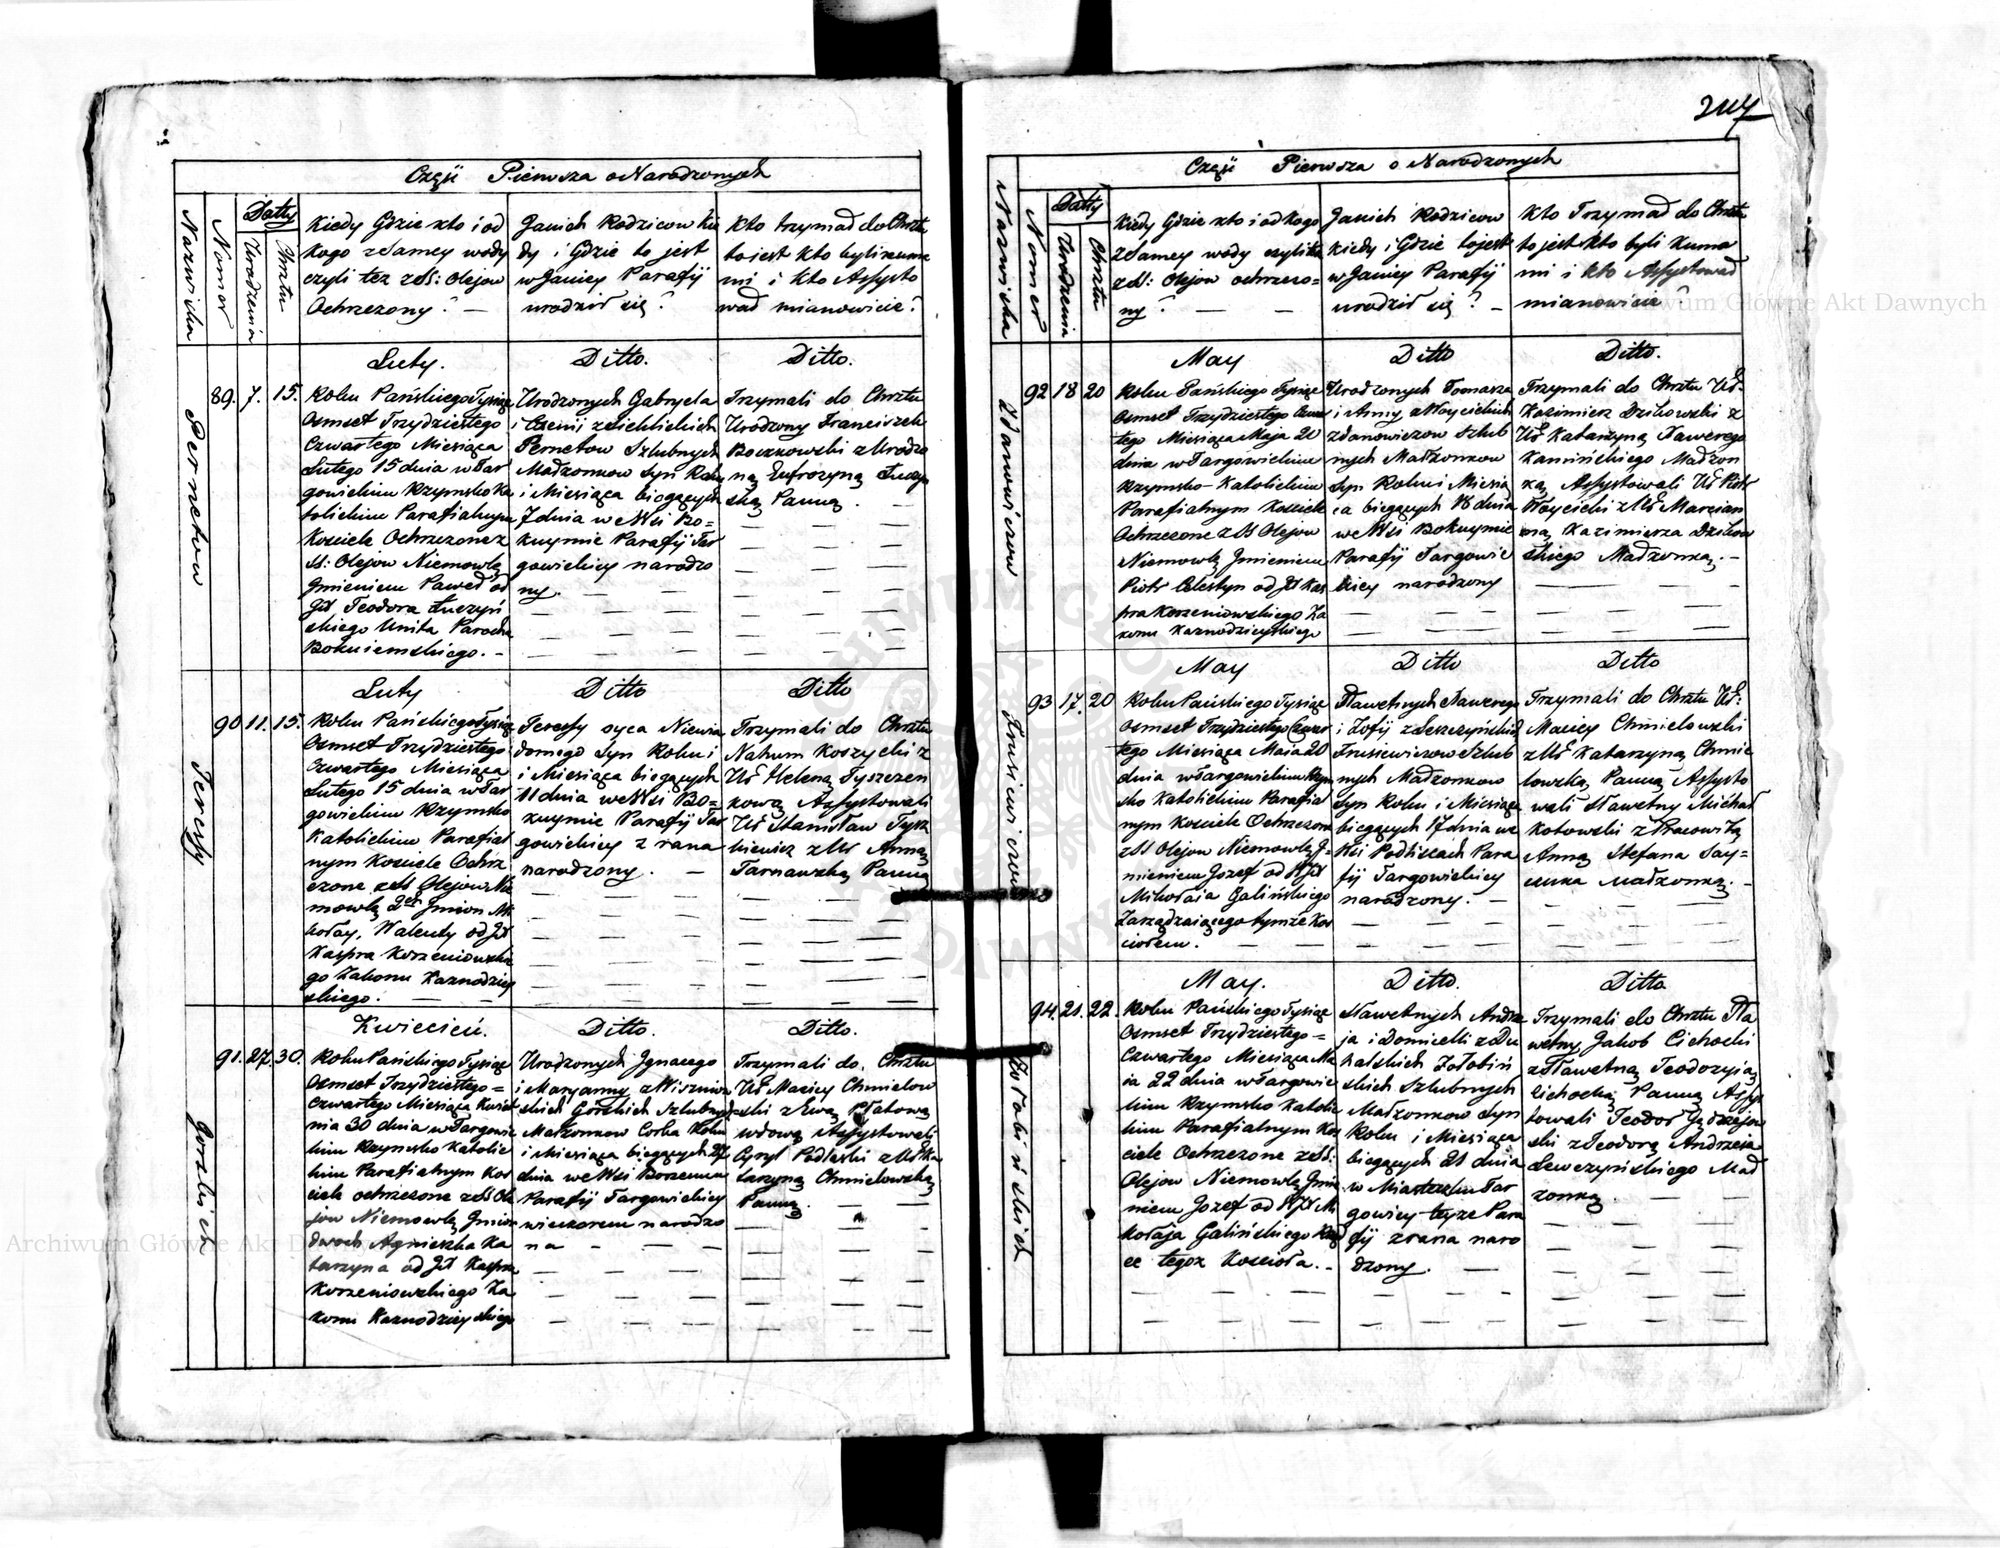 247
Częsć Pierwsza o Narodzonych
Nazwiska
Numer
Datty
Urodzenia
Chrztu
Kiedy Gdzie kto i od
kogo z Samey wody
czyli tez z SS: Olejow
Ochrzczony? —
Jakich Rodzicow kie
dy i Gdzie to jest
w Jakiey Parafij
urodził się?
Kto trzymał do Chrztu
to jest kto byli kuma
mi i kto Assysto
wał mianowicie?
Pernetow
89. 7. 15.
Luty.
Roku Pańskiego Tysiąc
Osmset Trzydziestego
Czwartego Miesiąca
Lutego 15 dnia w Tar
gowickim Rzymsko Ka
tolickim Parafialnym
Kosciele Ochrzczone z
SS: Olejow Niemowlę
Jmieniem Paweł od
Teodora Łuczyń
skiego Unita Parocha
Bokuiemskiego. —
Ditto.
Urodzonych Gabryela
Pernetow Szlubnych
Małżonkow Syn Roku
i Miesiąca biegących
7 dnia we Wsi Bo=
kuymie Parafij Tar
gowickiey narodzo
ny.
Ditto.
Trzymali do Chrztu
Urodzony Franciszek
Boczkowski z Urodzo
ną Eufrozyną
ską Panną.
Teressy
90 11. 15.
Luty
Roku Pańskiego Tysiąc
Osmset Trzydziestego
Czwartego Miesiąca
Lutego 15 dnia w Tar
gowickim Rzymsko
Katolickim Parafial
nym Kosciele Ochrz
czone z SS Olejow Nie
mowlę 2ch Jmion Mi
kołay, Walenty od
Kaspra Korzeniowskie
go Zakonu Kaznodziey
skiego.
Ditto
Teressy oyca Niewia
domego Syn Roku i
i Miesiąca biegących
11 dnia we Wsi Bo=
kuymie Parafij Tar
gowickiey z rana
narodzony. —
Ditto
Trzymali do Chrztu
Nahum Koszycki z
Heleną Tyszczen
kową Assystowali
Stanisław Tysz
kiewicz z Anną
Tarnawską Panną
Gorskich
91. 27. 30.
Kwiecień.
Roku Pańskiego Tysiąc
Osmset Trzydziestego=
Czwartego Miesiąca Kwiet
nia 30 dnia w Targowic
kim Rzymsko Katolic
kim Parafialnym Kos
ciele ochrzczone z SS Ole
jow Niemowlę Jmion
dwoch Agnieszka Ka
tarzyna od Kaspra
Korzeniowskiego Za
konu Kaznodzieyskiego
Ditto.
Urodzonych Jgnacego
i Maryanny z Wiszniow
skich Górskich Szlubnych
Małżonkow Corka Roku
i Miesiąca biegących 27
dnia we Wsi Borzemcu
Parafij Targowickiey
wieczorem narodzo
na
Ditto.
Trzymali do Chrztu
Maciey Chmielow
ski z Ewą Płatową
wdową Assystowali
Cyryl Podlaski z Ka
tarzyną Chmielowską
Panną.
Częsć Pierwsza o Narodzonych
Nazwiska
Numer
Datty
Urodzenia
Chrztu
Kiedy Gdzie kto i od kogo
z Samey wody czyli tez
z SS: Olejow ochrzczo=
ny? — —
Jakich Rodzicow
kiedy i Gdzie to jest
w Jakiey Parafij
urodził się? —
Kto Trzymał do Chrztu
to jest kto byli kuma
mi i kto Assystował
mianowicie?
Zdanowiczow
92 18 20
May
Roku Pańskiego Tysiąc
Osmset Trzydziestego Czwar
tego Miesiąca Maja 20
dnia w Targowickim
Rzymsko-Katolickim
Parafialnym Kosciele
Ochrzczone z SS Olejow
Niemowlę Jmieniem
Piotr Celestyn od Kas
pra Korzeniowskiego Za
konu Kaznodzieyskiego
Ditto
Urodzonych Tomasza
i Anny z Woycickich
Zdanowiczow Szlub
nych Małżonkow
Syn Roku i Miesią
ca biegących 18 dnia
we Wsi Bokuymie
Parafij Targowic
kiey narodzony
Ditto.
Trzymali do Chrztu
Kazimierz Dzikowski z
Katarzyną Xawerego
Kamińskiego Małżon
ką Assystowali Piotr
Woycicki z Marcian
ną Kazimierza Dzikow
skiego Małżonką. —
Trusiewiczow
93 17. 20
May
Roku Pańskiego Tysiąc
Osmset Trzydziestego Czwar
tego Miesiąca Maia 20
dnia w Targowickim Rzym
sko Katolickim Parafial
nym Kosciele Ochrzczone
z SS Olejow Niemowlę J=
mieniem Jozef od
Mikołaia Galińskiego
Zarządzaiącego tymże Kos
ciołem.
Ditto
Sławetnych Xawerego
i Zofij z Leszczyńskich
Trusiewiczow Szlub
nych Małżonkow
Syn Roku i Miesiąca
biegących 17 dnia we
Wsi Podliscach Para
fij Targowickiey
narodzony. —
Ditto
Trzymali do Chrztu
Maciey Chmielowski
z Katarzyną Chmie
lowską Panną Assysto
wali Sławetny Michał
Kotowski z Pracowitą
Anną Stefana Say=
czuka Małżonką. —
Zołobińskich
94. 21. 22.
May.
Roku Pańskiego Tysiąc
Osmset Trzydziestego=
Czwartego Miesiąca Ma
ia 22 dnia w Targowic
kim Rzymsko Katolic
kim Parafialnym Kos
ciele Ochrzczone z SS:
Olejow Niemowlę Jmie
niem Jozef od Mi
kołaja Galińskiego Rząd
ce tegoż Kosciola. —
Ditto.
Sławetnych Andrze
ja i Domicelli z Du
nalskich Zołobiń
skich Szlubnych
Małżonkow Syn
Roku i Miesiąca
biegących 21 dnia
w Miasteczku Tar
gowicy teyze Para
fij z rana naro
dzony. —
Ditto
Trzymali do Chrztu Sła
wetny Jakob Cichocki
z Sławetną Teodozyią
Cichocką Panną Assys
towali Teodor Jędrzejow
ski z Teodorą Andrzeia
Lewczyńskiego Mał
żonką.
Archiwum Główne Akt Dawnych
Archiwum Główne Akt Dawnych